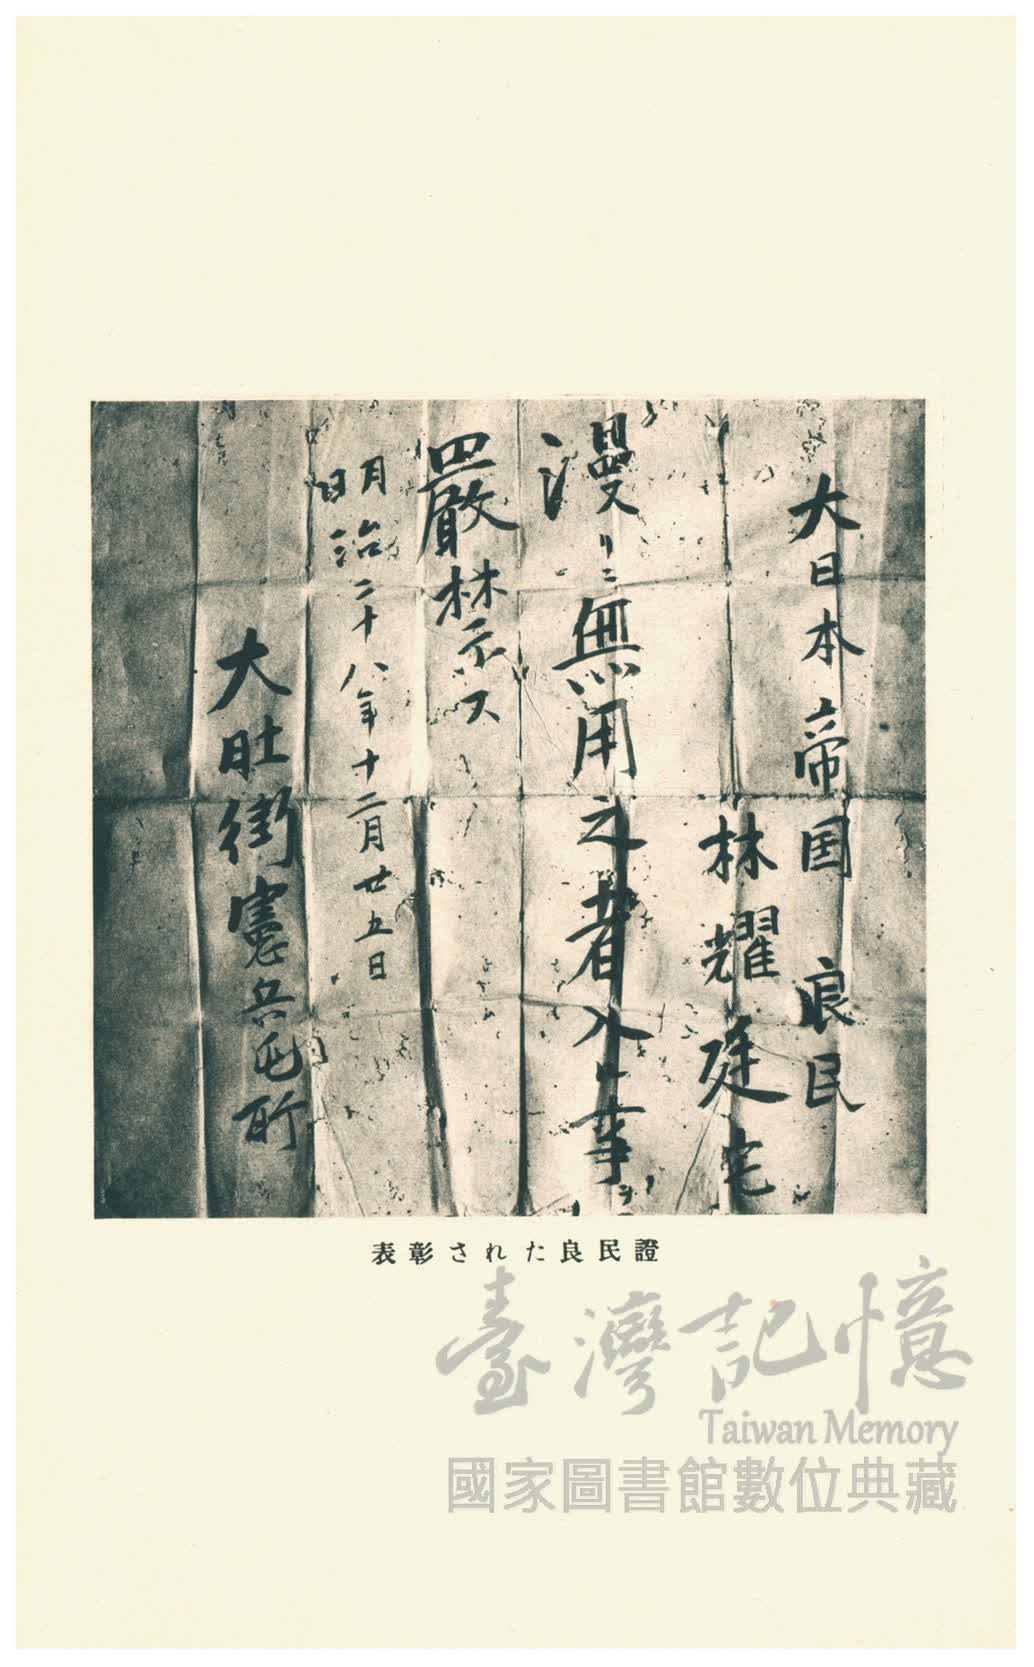 大日本帝国良民
林耀庭宅
漫リニ無用之者入ル事ヲ
嚴禁示ス
明治二十八年十二月廿五日
大肚街憲兵屯所
表彰された良民證
臺灣記憶
Taiwan Memory
國家圖書館數位典藏